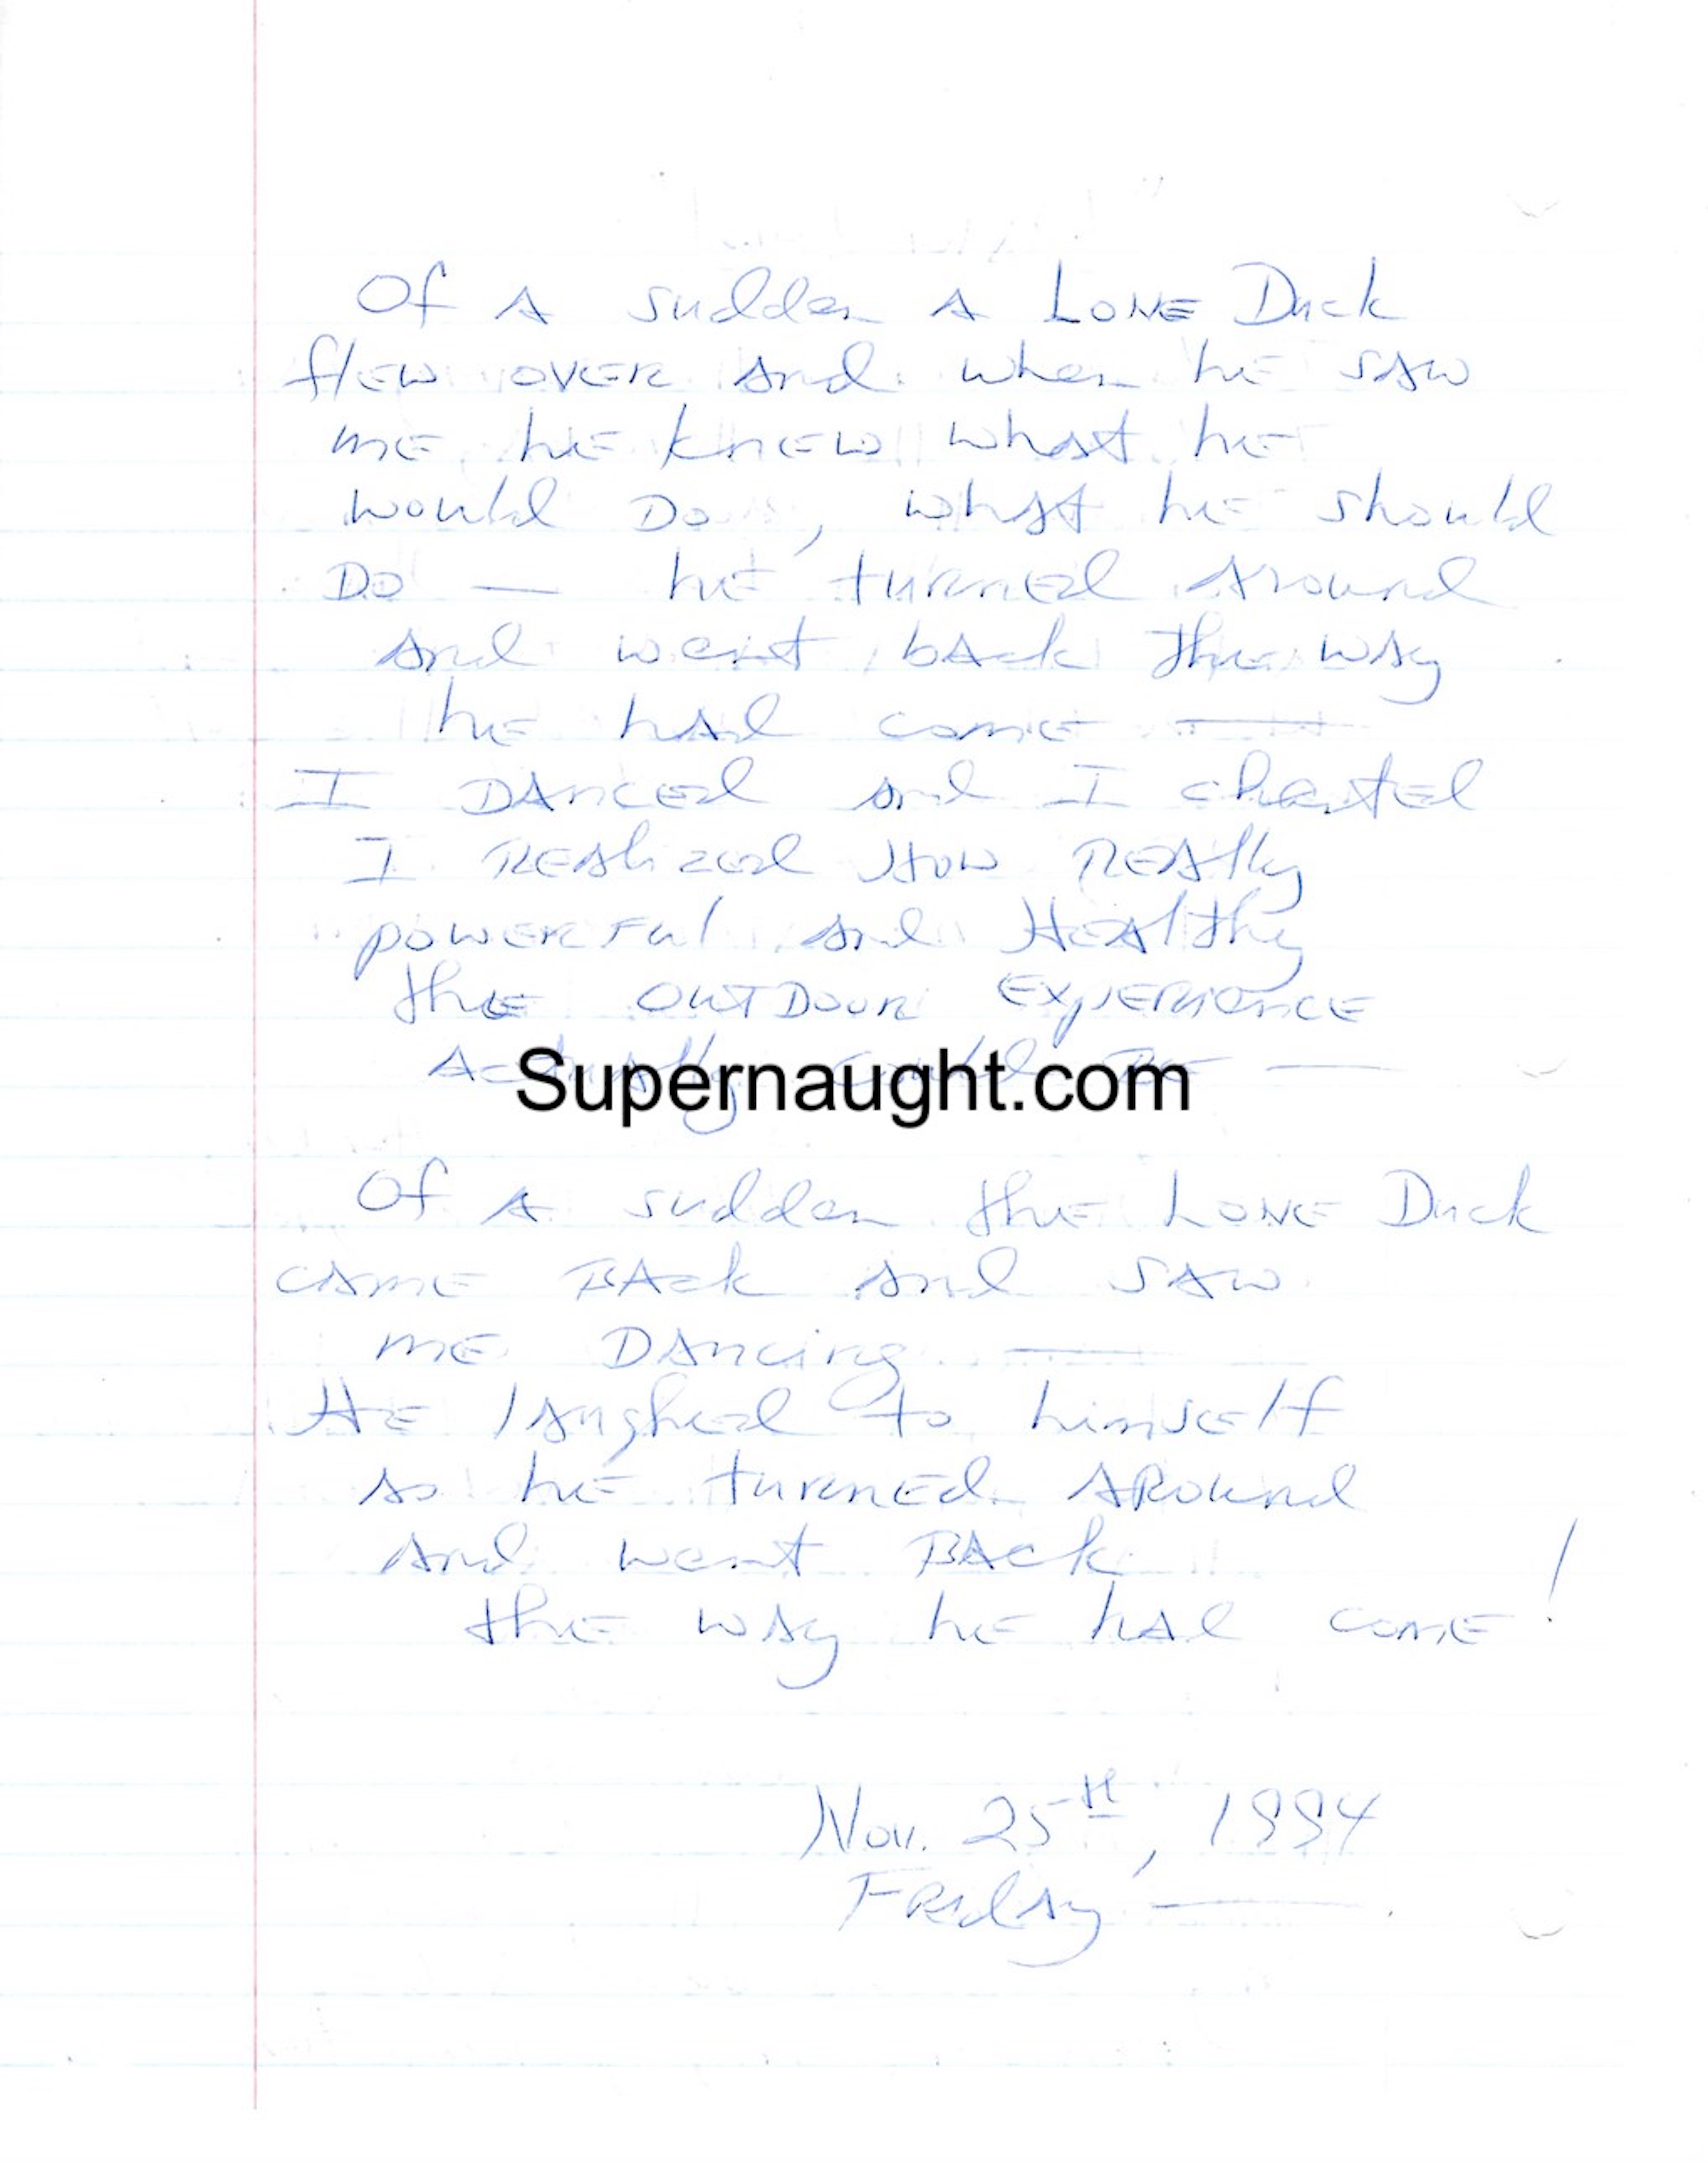 Of A sudden A LONE Duck
flEW OVER And when hE SAW
mE hE knEW whAt hE
would Do, whAt hE should
Do — hE turnEd Around
And went bAck thE wAy
hE hAd comE —
I DAncEd And I chanted
I REAlized How REAlly
powERFul And HEAlthy
thE OUTDOOR ExpERiEncE
ActuAlly could BE —
Supernaught.com
Of A sudden thE LONE Duck
cAmE BAck And SAW
mE DAncing —
HE lAughed to himsElf
As hE turnEd ARound
And went BAck
thE wAy hE hAd comE!
Nov. 25th, 1994
FRidAy —